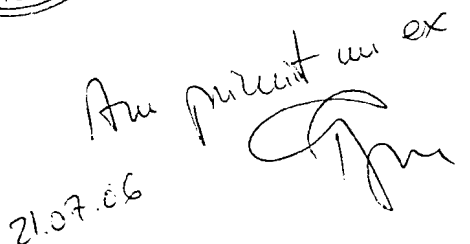 Am primit un ex
21.07.06